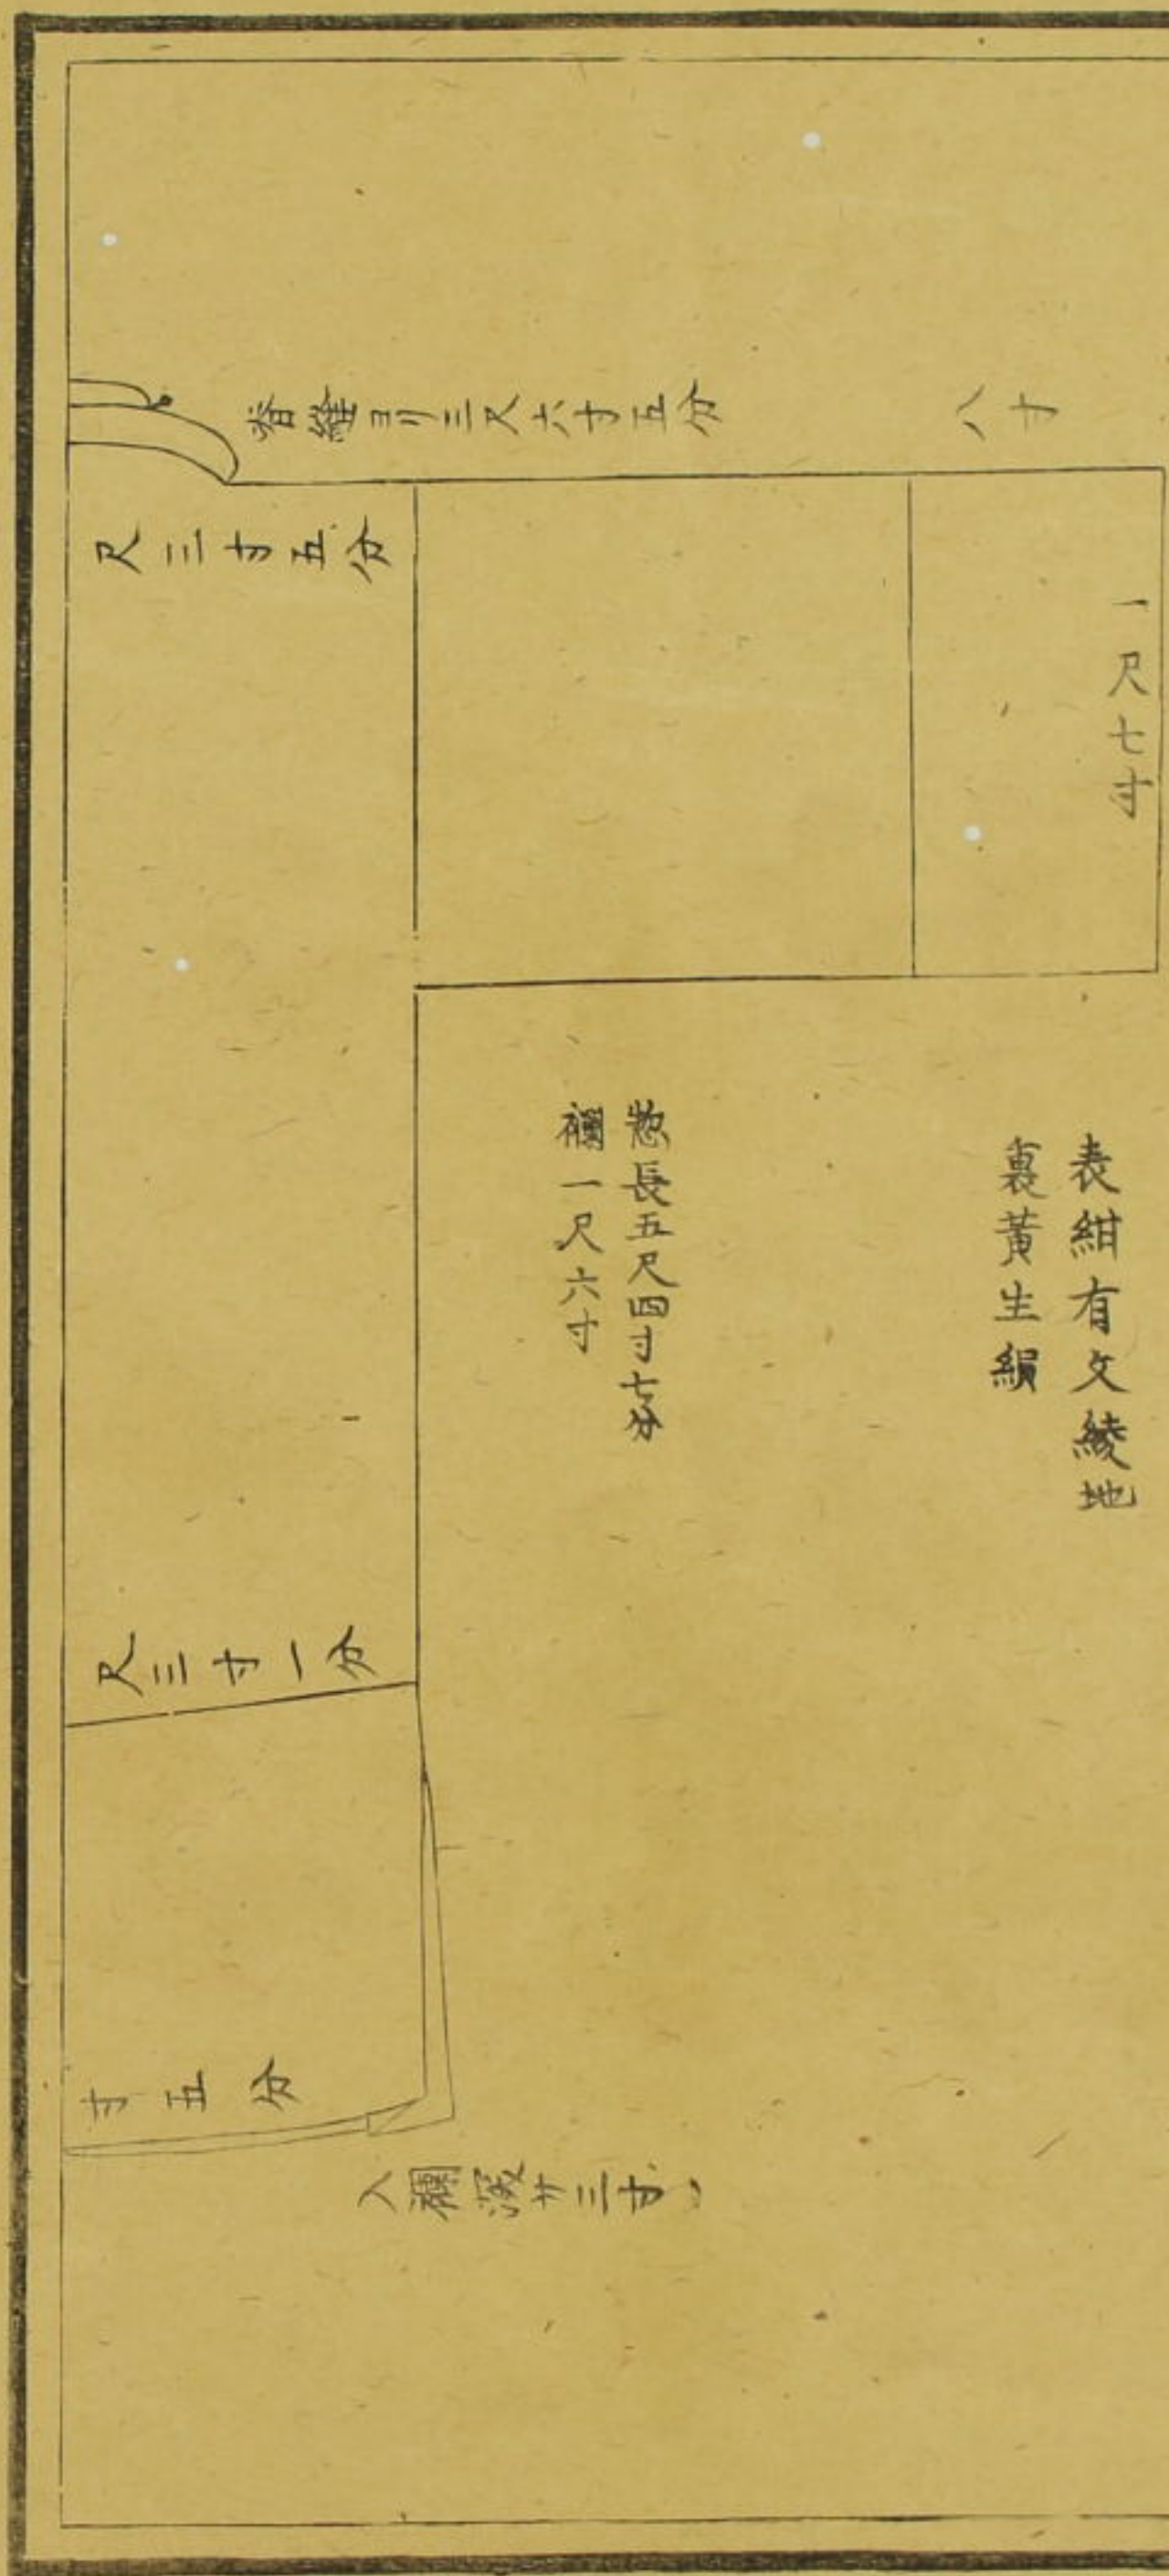 脊縫ヨリ三尺六寸五分
八寸
尺三寸五分
一尺七寸
表紺有文綾地
裏黄生絹
惣長五尺四寸七分
襴一尺六寸
尺三寸一分
寸五分
入襴深サ三寸